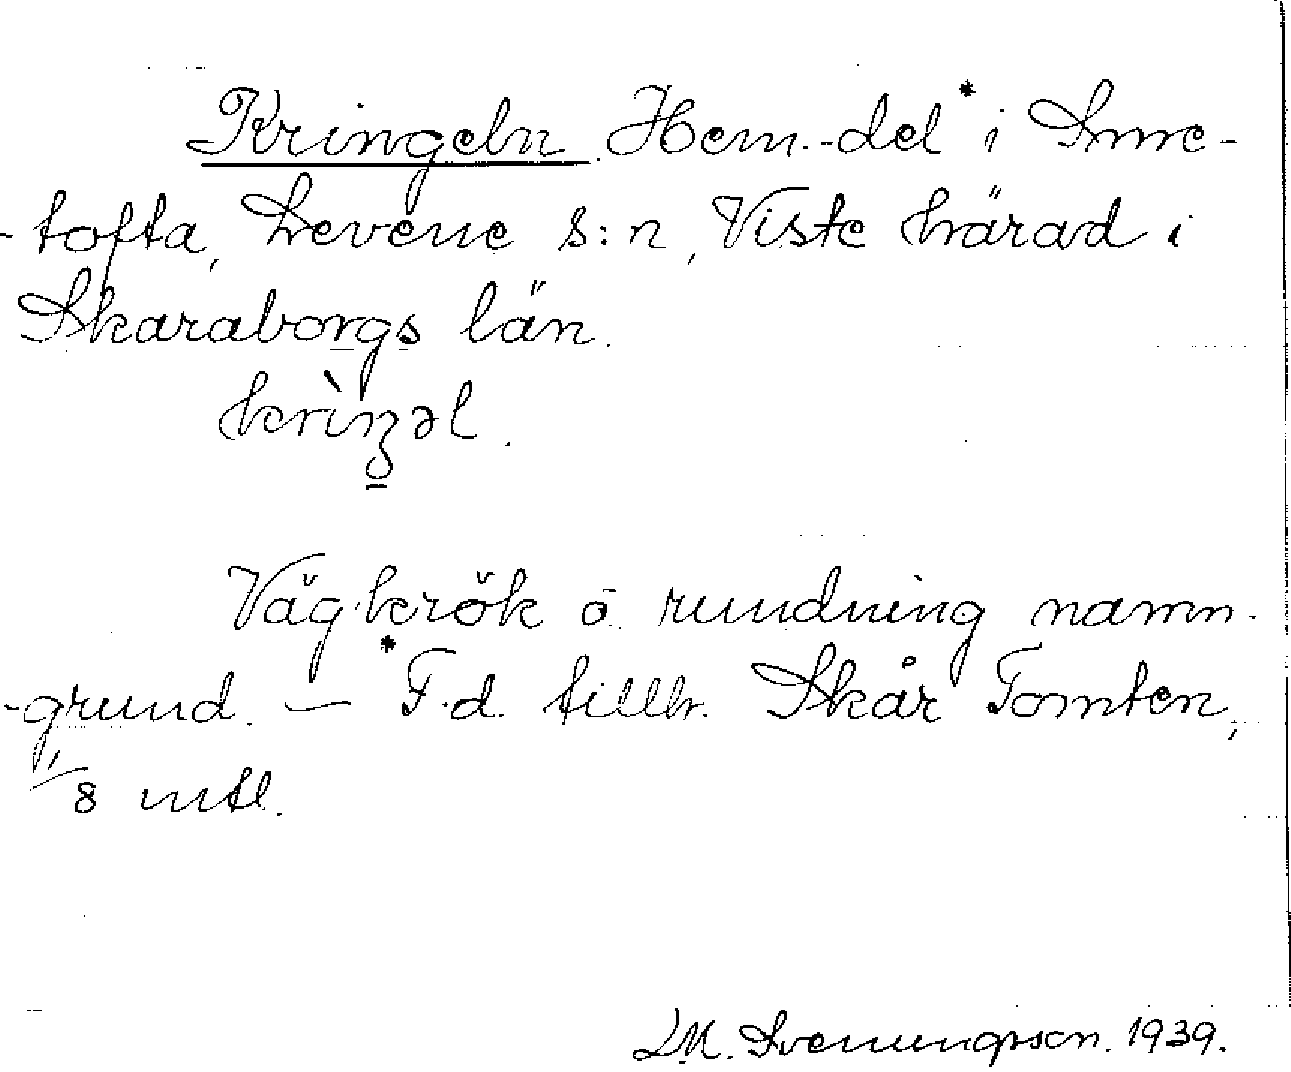 Kringeln. Hem.-del* i Sme-
-tofta, Levene s:n, Viste härad i
Skaraborgs län.
krìŋəl.
Vägkrök o. rundning namn-
-grund. — *F.d. tillh. Skår Tomten,
1/8 mtl.
D.M. Svenungsson. 1939.